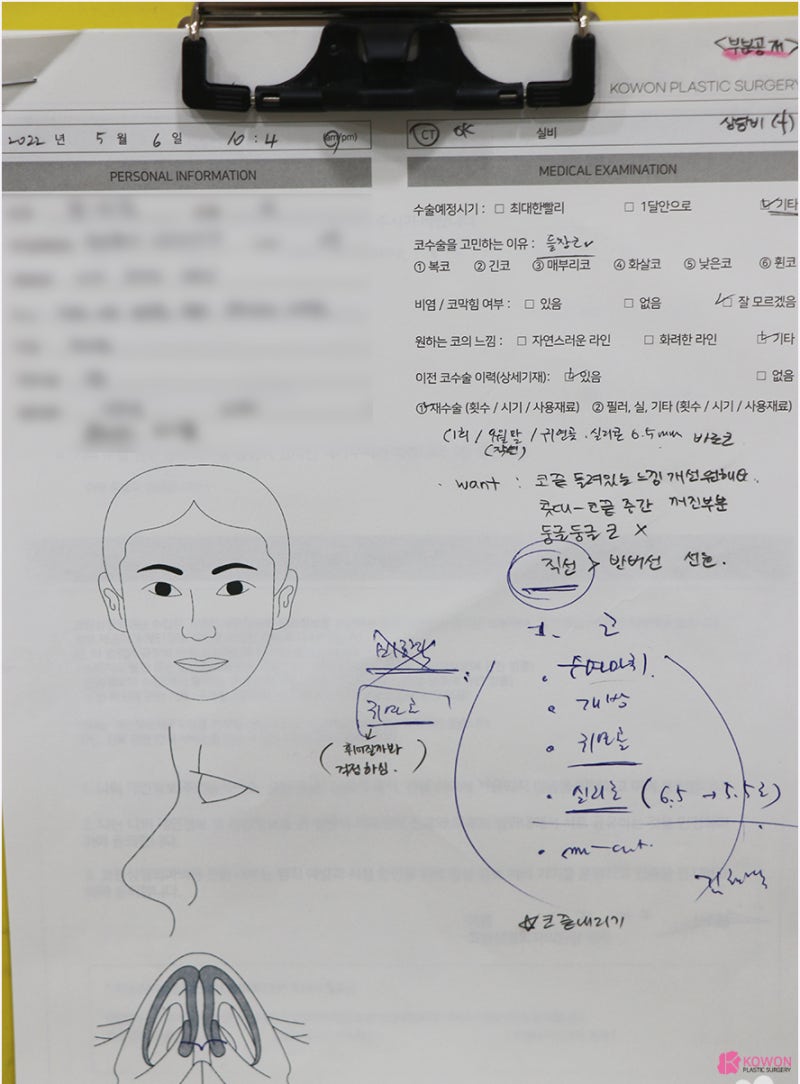 <부분공개>
KOWON PLASTIC SURGERY
2022 년 5 월 6 일 10 : 4 (am/pm)
CT OK 실비 상담비 (4)
PERSONAL INFORMATION
MEDICAL EXAMINATION
수술예정시기 : □ 최대한빨리 □ 1달안으로 ☑ 기타
코수술을 고민하는 이유 : 들창코
① 복코 ② 긴코 ③ 매부리코 ④ 화살코 ⑤ 낮은코 ⑥ 휜코
비염 / 코막힘 여부 : □ 있음 □ 없음 ☑ 잘 모르겠음
원하는 코의 느낌 : □ 자연스러운 라인 □ 화려한 라인 ☑ 기타
이전 코수술 이력(상세기재): ☑ 있음 □ 없음
① 재수술 (횟수 / 시기 / 사용재료) ② 필러, 실, 기타 (횟수 / 시기 / 사용재료)
(1회 / 9월말 / 귀연골. 실리콘 6.5mm 바로코
(작년)
· want : 코끝 들려있는 느낌 개선원해요.
콧대-코끝 중간 꺼진부분
둥글둥글 코 X
직선 > 반버선 선호.
1. 코
· 수면마취.
· 개방
귀연골
· 귀연골
(휘어질까봐
걱정하심.)
· 실리콘 (6.5 → 5.5로)
☆코끝내리기
KOWON
PLASTIC SURGERY